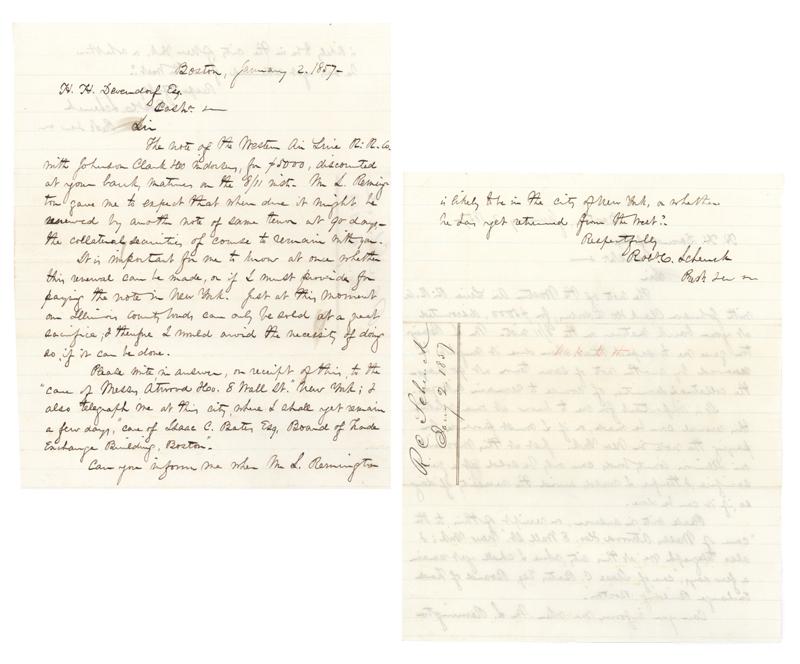 Boston, January 2. 1857-
H. H. Devendorf Esq.
Cashr.
Sir
The note of the Western Air Line R. R. Co.
with Johnson Clark &co indorsers, for $5000, discounted
at your bank, matures on the 8/11 inst. Mr L. Reming-
ton gave me to expect that when due it might be
renewed by another note of same tenor at 90 days-
the collateral securities of course to remain with you.
It is important for me to know at once whether
this renewal can be made, or if I must provide for
paying the note in New York. Just at this moment
our Illinois County bonds can only be sold at a great
sacrifice; & therefore I would avoid the necessity of doing
so, if it can be done.
Please write in answer, on receipt of this, to the
"care of Messrs Atwood &co. 8 Wall St." New York; &
also telegraph me at this city, where I shall yet remain
a few days, "care of Isaac C. Bates Esq, Board of Trade
Exchange Building, Boston".
Can you inform me when Mr L. Remington
is likely to be in the city of New York, or whether
he has yet returned from the West?
Respectfully
Robt C. Schenck
R C Schenck
Jany 2, 1857